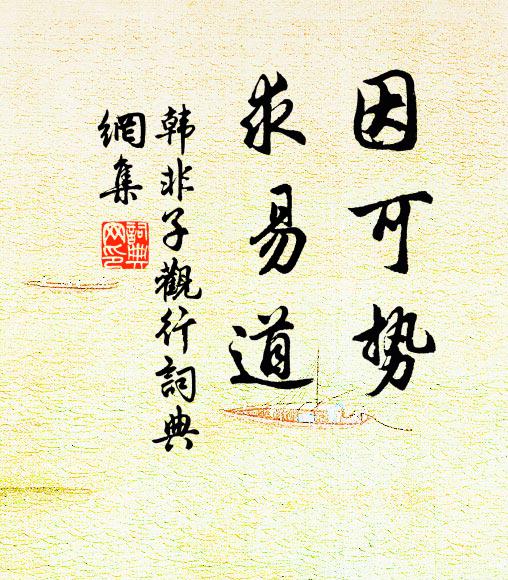 因可势
求易道
韩非子觀行詞典
網集
詞典
网印